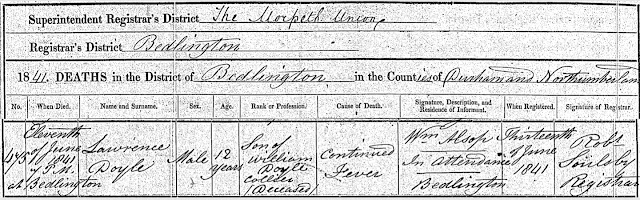 Superintendent Registrar's District The Morpeth Union
Registrar's District Bedlington
1841. DEATHS in the District of Bedlington in the Counties of Durham and Northumberland
No. When Died. Name and Surname. Sex. Age. Rank or Profession. Cause of Death. Signature, Description, and Residence of Informant. When Registered. Signature of Registrar.
475 Eleventh of June 1841 7 P.M. at Bedlington
Lawrence Doyle
Male
12 years
Son of William Doyle Collier (Deceased)
Continued Fever
Wm Alsop In Attendance Bedlington
Thirteenth of June 1841
Robt Soulsby Registrar